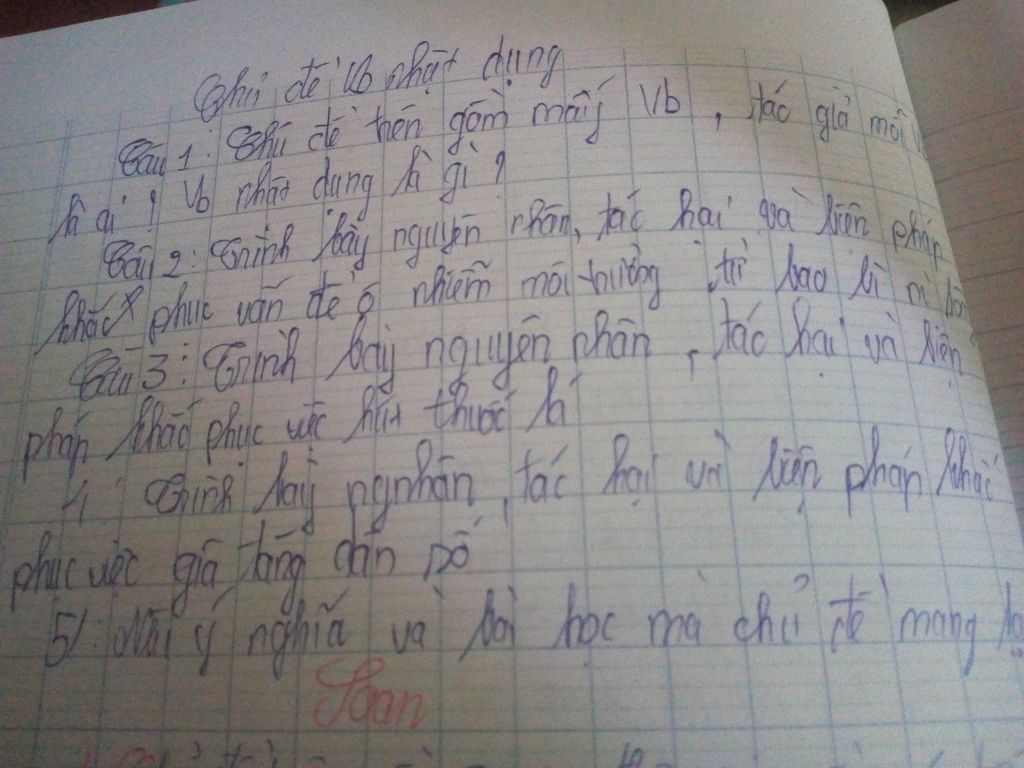 Chủ đề Vb nhật dụng
Câu 1: Chủ đề trên gồm mấy Vb, tác giả mỗi
là ai? Vb nhật dụng là gì?
Câu 2: Trình bày nguyên nhân, tác hại và biện pháp
khắc phục vấn đề ô nhiễm môi trường từ bao bì ni
Câu 3: Trình bày nguyên nhân, tác hại và biện
pháp khắc phục việc hút thuốc lá
4: Trình bày ngnhân, tác hại và biện pháp khắc
phục việc gia tăng dân số
5/: Nêu ý nghĩa và bài học mà chủ đề mang
Soạn